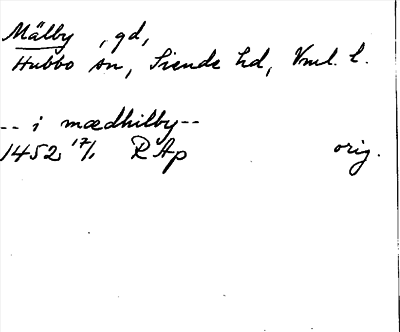 Mälby, gd,
Hubbo sn, Siende hd, Vml. l.
-- i mædhilby --
1452 17/1 RAp orig.